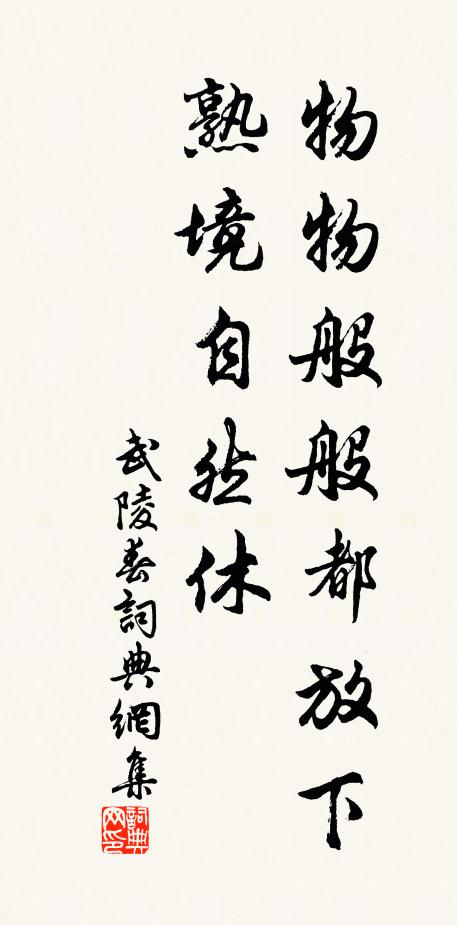 物物般般都放下
熟境自然休
武陵春詞典網集
詞典网印